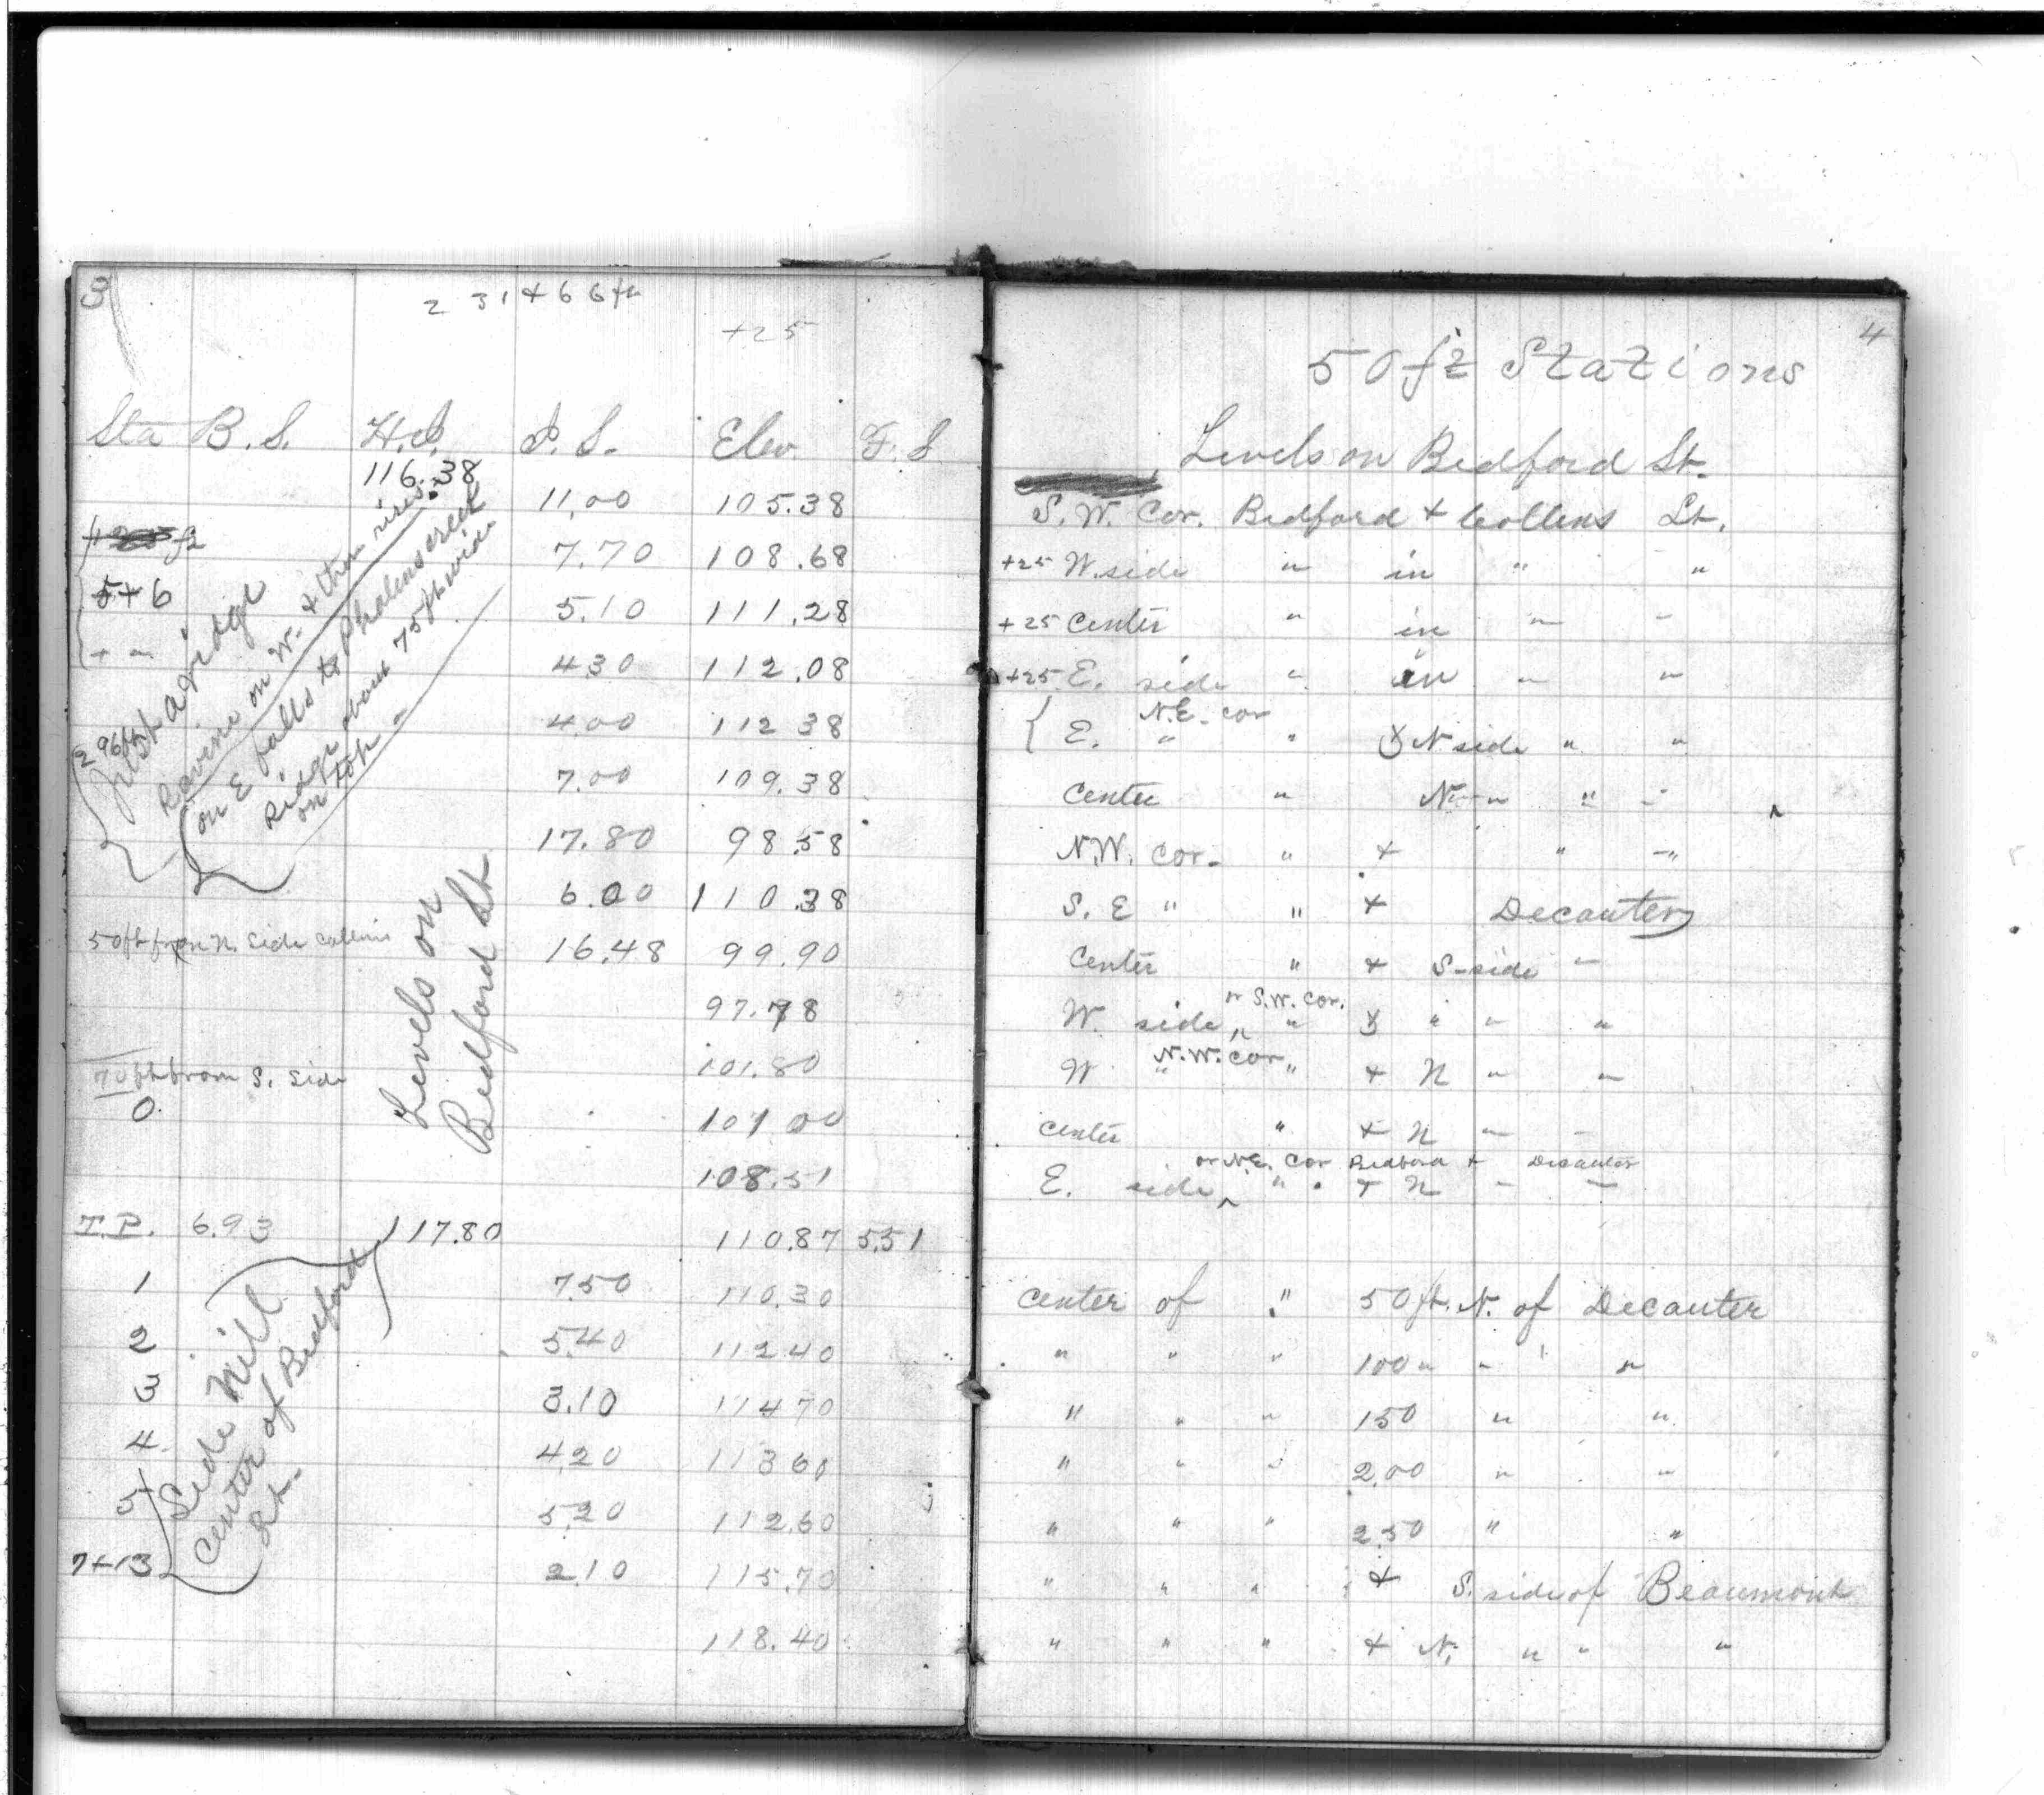 3
2 31 + 66 ft
+25
Sta B. S. H.I. I. S. Elev F. S
116.38
11.00 105.38
7.70 108.68
5+6 5.10 111.28
4.30 112.08
4.00 112 38
7.00 109.38
17.80 98.58
6.00 110.38
50ft from N. Side Collins 16.48 99.90
97.78
70ft from S. Side 101.80
0. 107 00
108.51
T.P. 6.93 117.80 110.87 5.51
1 7.50 110.30
2 5.40 112 40
3 3.10 114 70
4. 4.20 113 60
5 5.20 112.60
7+13 2.10 115.70
118.40
296ft
Just a ridge
Ravine on W. + then rises.
on E falls to Phalens creek
Ridge about 75ft wide
on top
Levels on
Bedford St
Side Hill
Center of Bedford
St.
4
50 ft Stations
Levels on Bedford St.
S. W. Cor. Bedford + Collins St.
+25 W. side " in " "
+25 Center " in " "
+25 E. side " in " "
N.E. cor
E. " " + N side " "
Center " N " " "
N.W. Cor. " + " "
S. E " " + Decauter
Center " + S-side "
or S.W. Cor.
W. side " + " " "
N.W. Cor
W " " + N " "
Center " + N " "
or N.E. Cor Bedford + Decauter
E. side " + N " "
Center of " 50 ft. N. of Decauter
" " " 100 " " "
" " " 150 " "
" " " 2.00 " "
" " " 2.50 " "
" " " + S. side of Beaumont
" " " + N. " " "